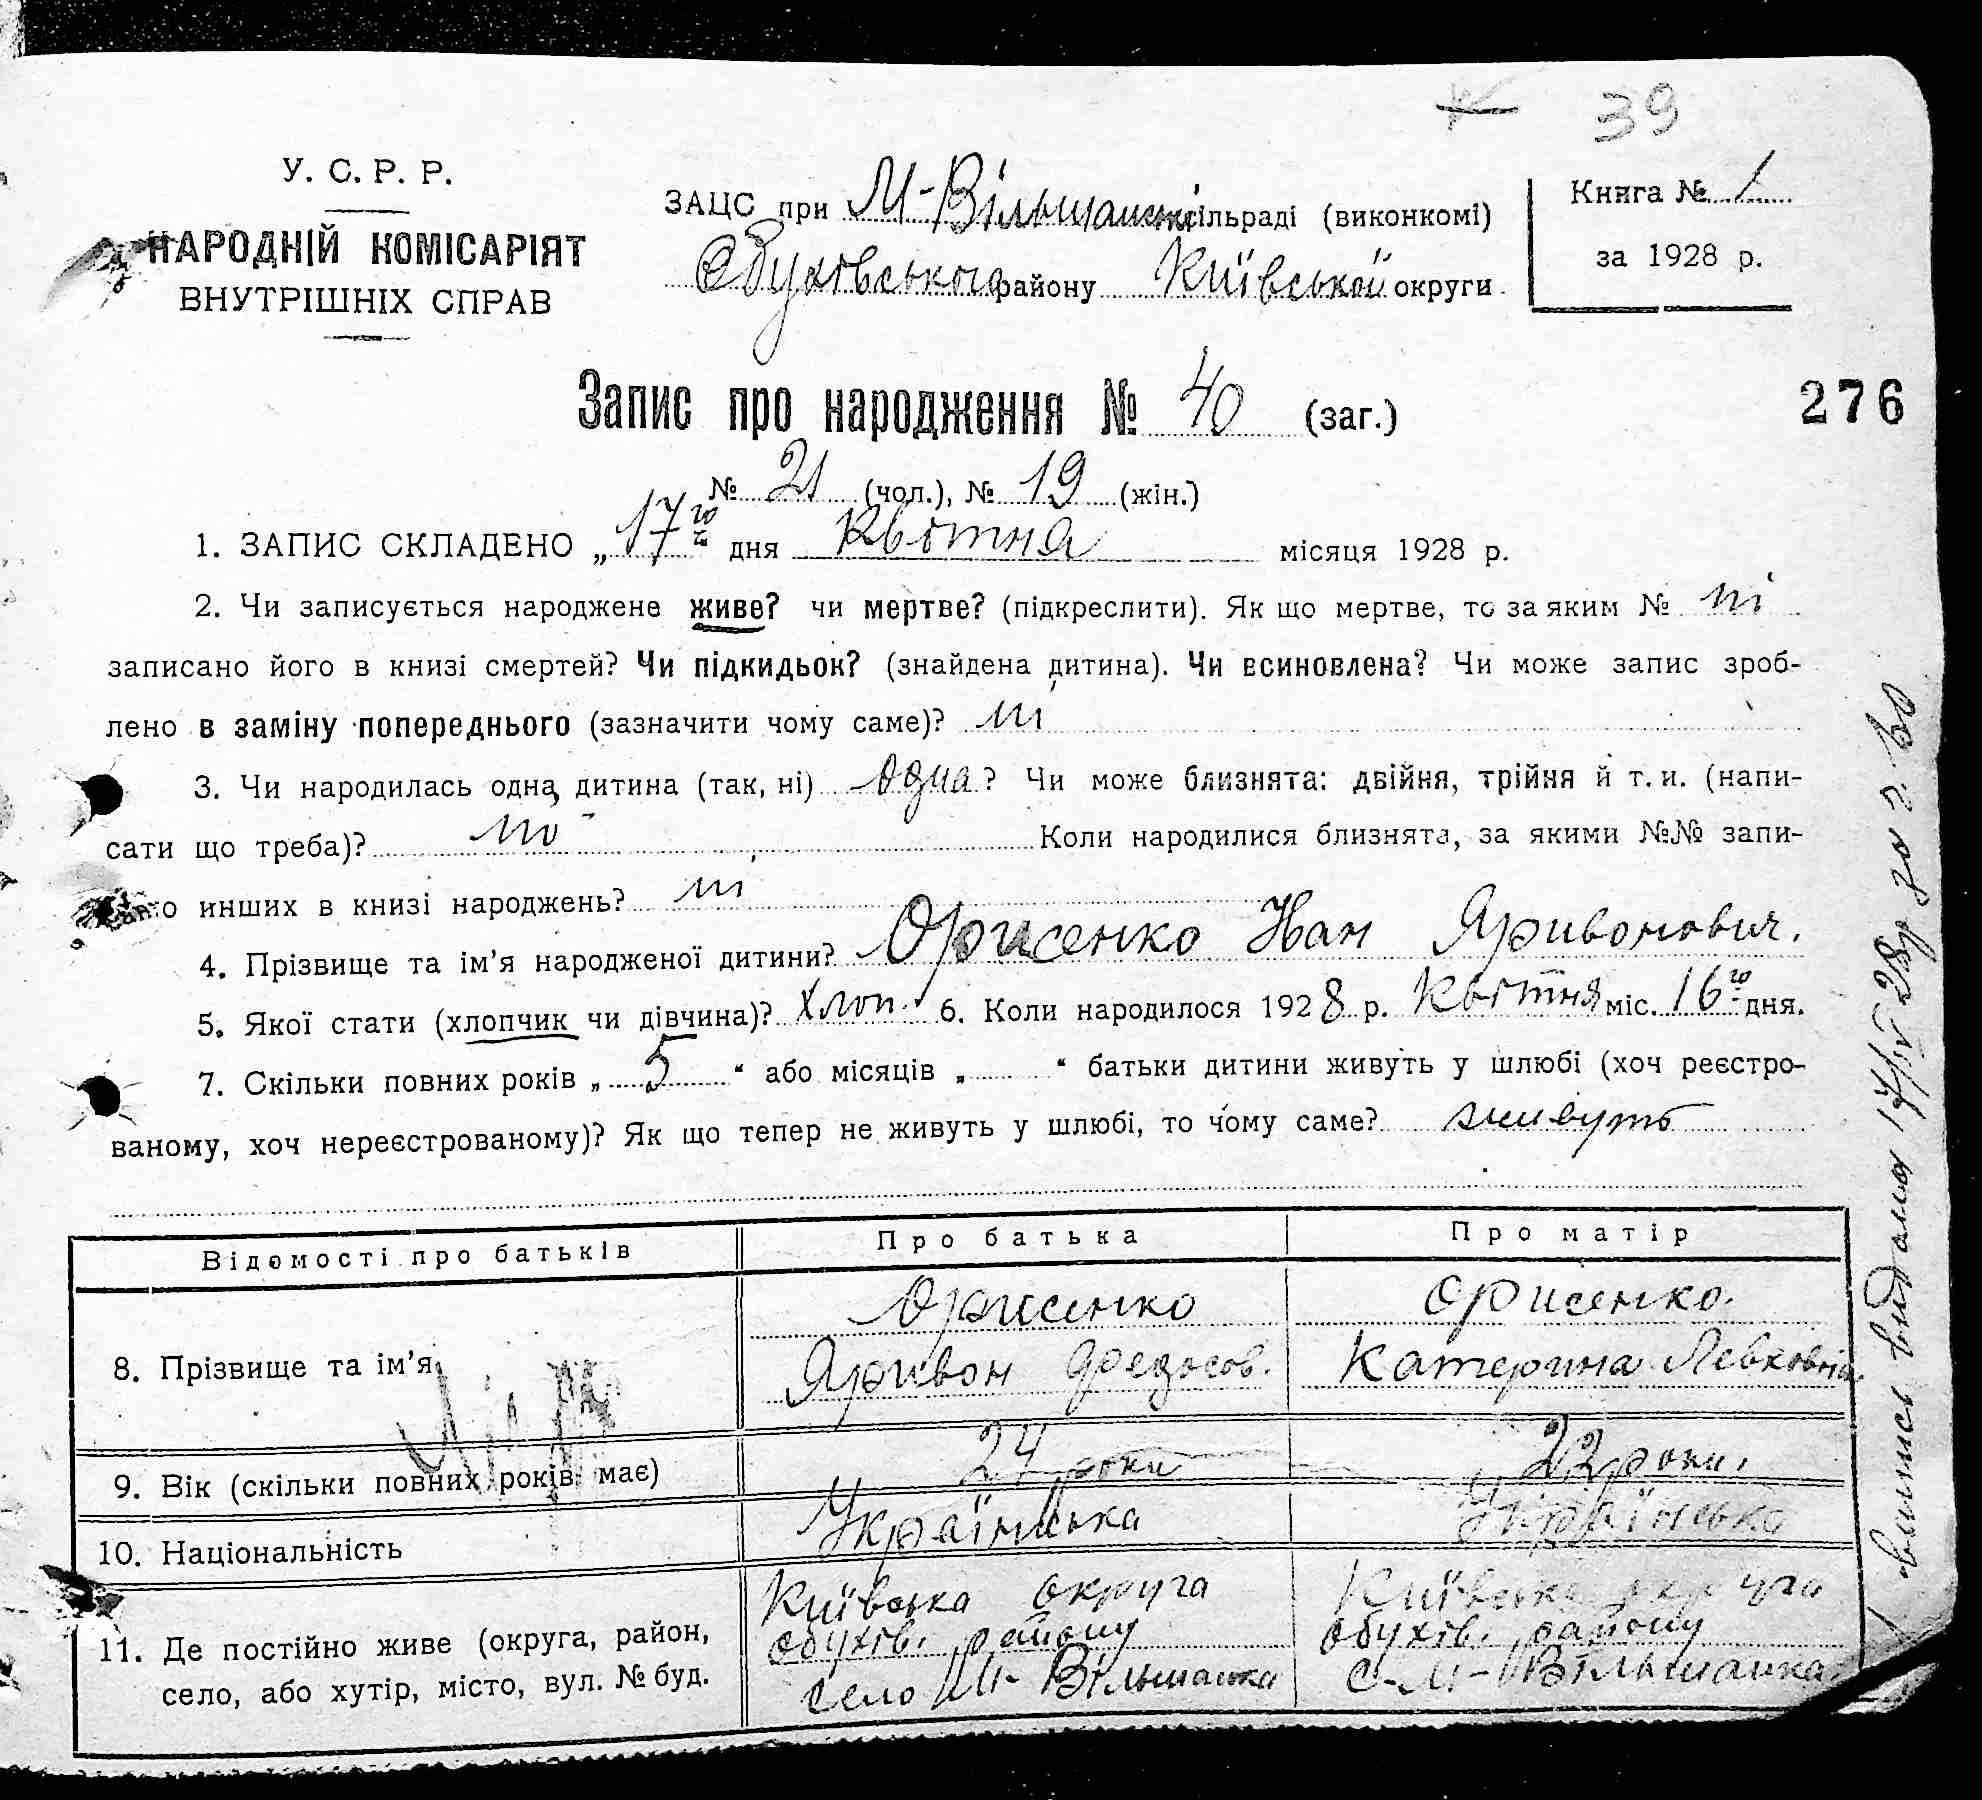 39
У. С. Р. Р.
НАРОДНІЙ КОМІСАРІЯТ
ВНУТРІШНІХ СПРАВ
ЗАЦС при М-Вільшанській сільраді (виконкомі)
Обухівського району Київської округи
Книга № 1
за 1928 р.
Запис про народження № 40 (заг.)
276
№ 21 (чол.), № 19 (жін.)
1. ЗАПИС СКЛАДЕНО „ 17го дня Квітня місяця 1928 р.
2. Чи записується народжене живе? чи мертве? (підкреслити). Як що мертве, то за яким № ні
записано його в книзі смертей? Чи підкидьок? (знайдена дитина). Чи всиновлена? Чи може запис зроб-
лено в заміну попереднього (зазначити чому саме)? ні
3. Чи народилась одна дитина (так, ні) одна? Чи може близнята: двійня, трійня й т. и. (напи-
сати що треба)? ні Коли народилися близнята, за якими №№ запи-
инших в книзі народжень? ні
4. Прізвище та ім’я народженої дитини? Орисенко Іван Яривонович.
5. Якої стати (хлопчик чи дівчина)? хлоп. 6. Коли народилося 1928 р. Квітня міс. 16го дня.
7. Скільки повних років „ 5 “ або місяців „ “ батьки дитини живуть у шлюбі (хоч реєстро-
ваному, хоч нереєстрованому)? Як що тепер не живуть у шлюбі, то чому саме? живуть
Відомості про батьків Про батька Про матір
8. Прізвище та ім’я
Орисенко
Яривон Федосов.
Орисенко.
Катерина Левковна.
9. Вік (скільки повних років має) 24 роки 22 роки.
10. Національність Українська Українська
11. Де постійно живе (округа, район,
село, або хутір, місто, вул. № буд.
Київська округа
Обухів. району
село М-Вільшанка
Київська округа
Обухів. району
с-М-Вільшанка
Випис видано 17/IV 28р за №40